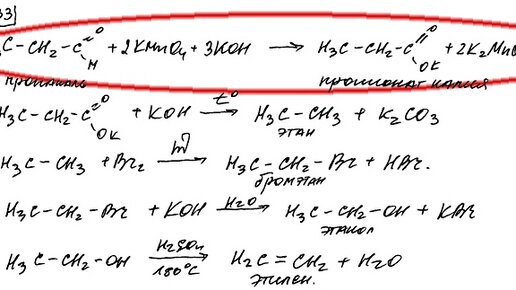 33
H₃C-CH₂-C(=O)H + 2KMnO₄ + 3KOH → H₃C-CH₂-C(=O)OK + 2K₂Mn
пропаналь пропионат калия
H₃C-CH₂-C(=O)OK + KOH →(t°) H₃C-CH₃ + K₂CO₃
этан
H₃C-CH₃ + Br₂ →(hν) H₃C-CH₂-Br + HBr.
бромэтан
H₃C-CH₂-Br + KOH →(H₂O) H₃C-CH₂-OH + KBr
этанол
H₃C-CH₂-OH →(H₂SO₄, 180°C) H₂C=CH₂ + H₂O
этилен.